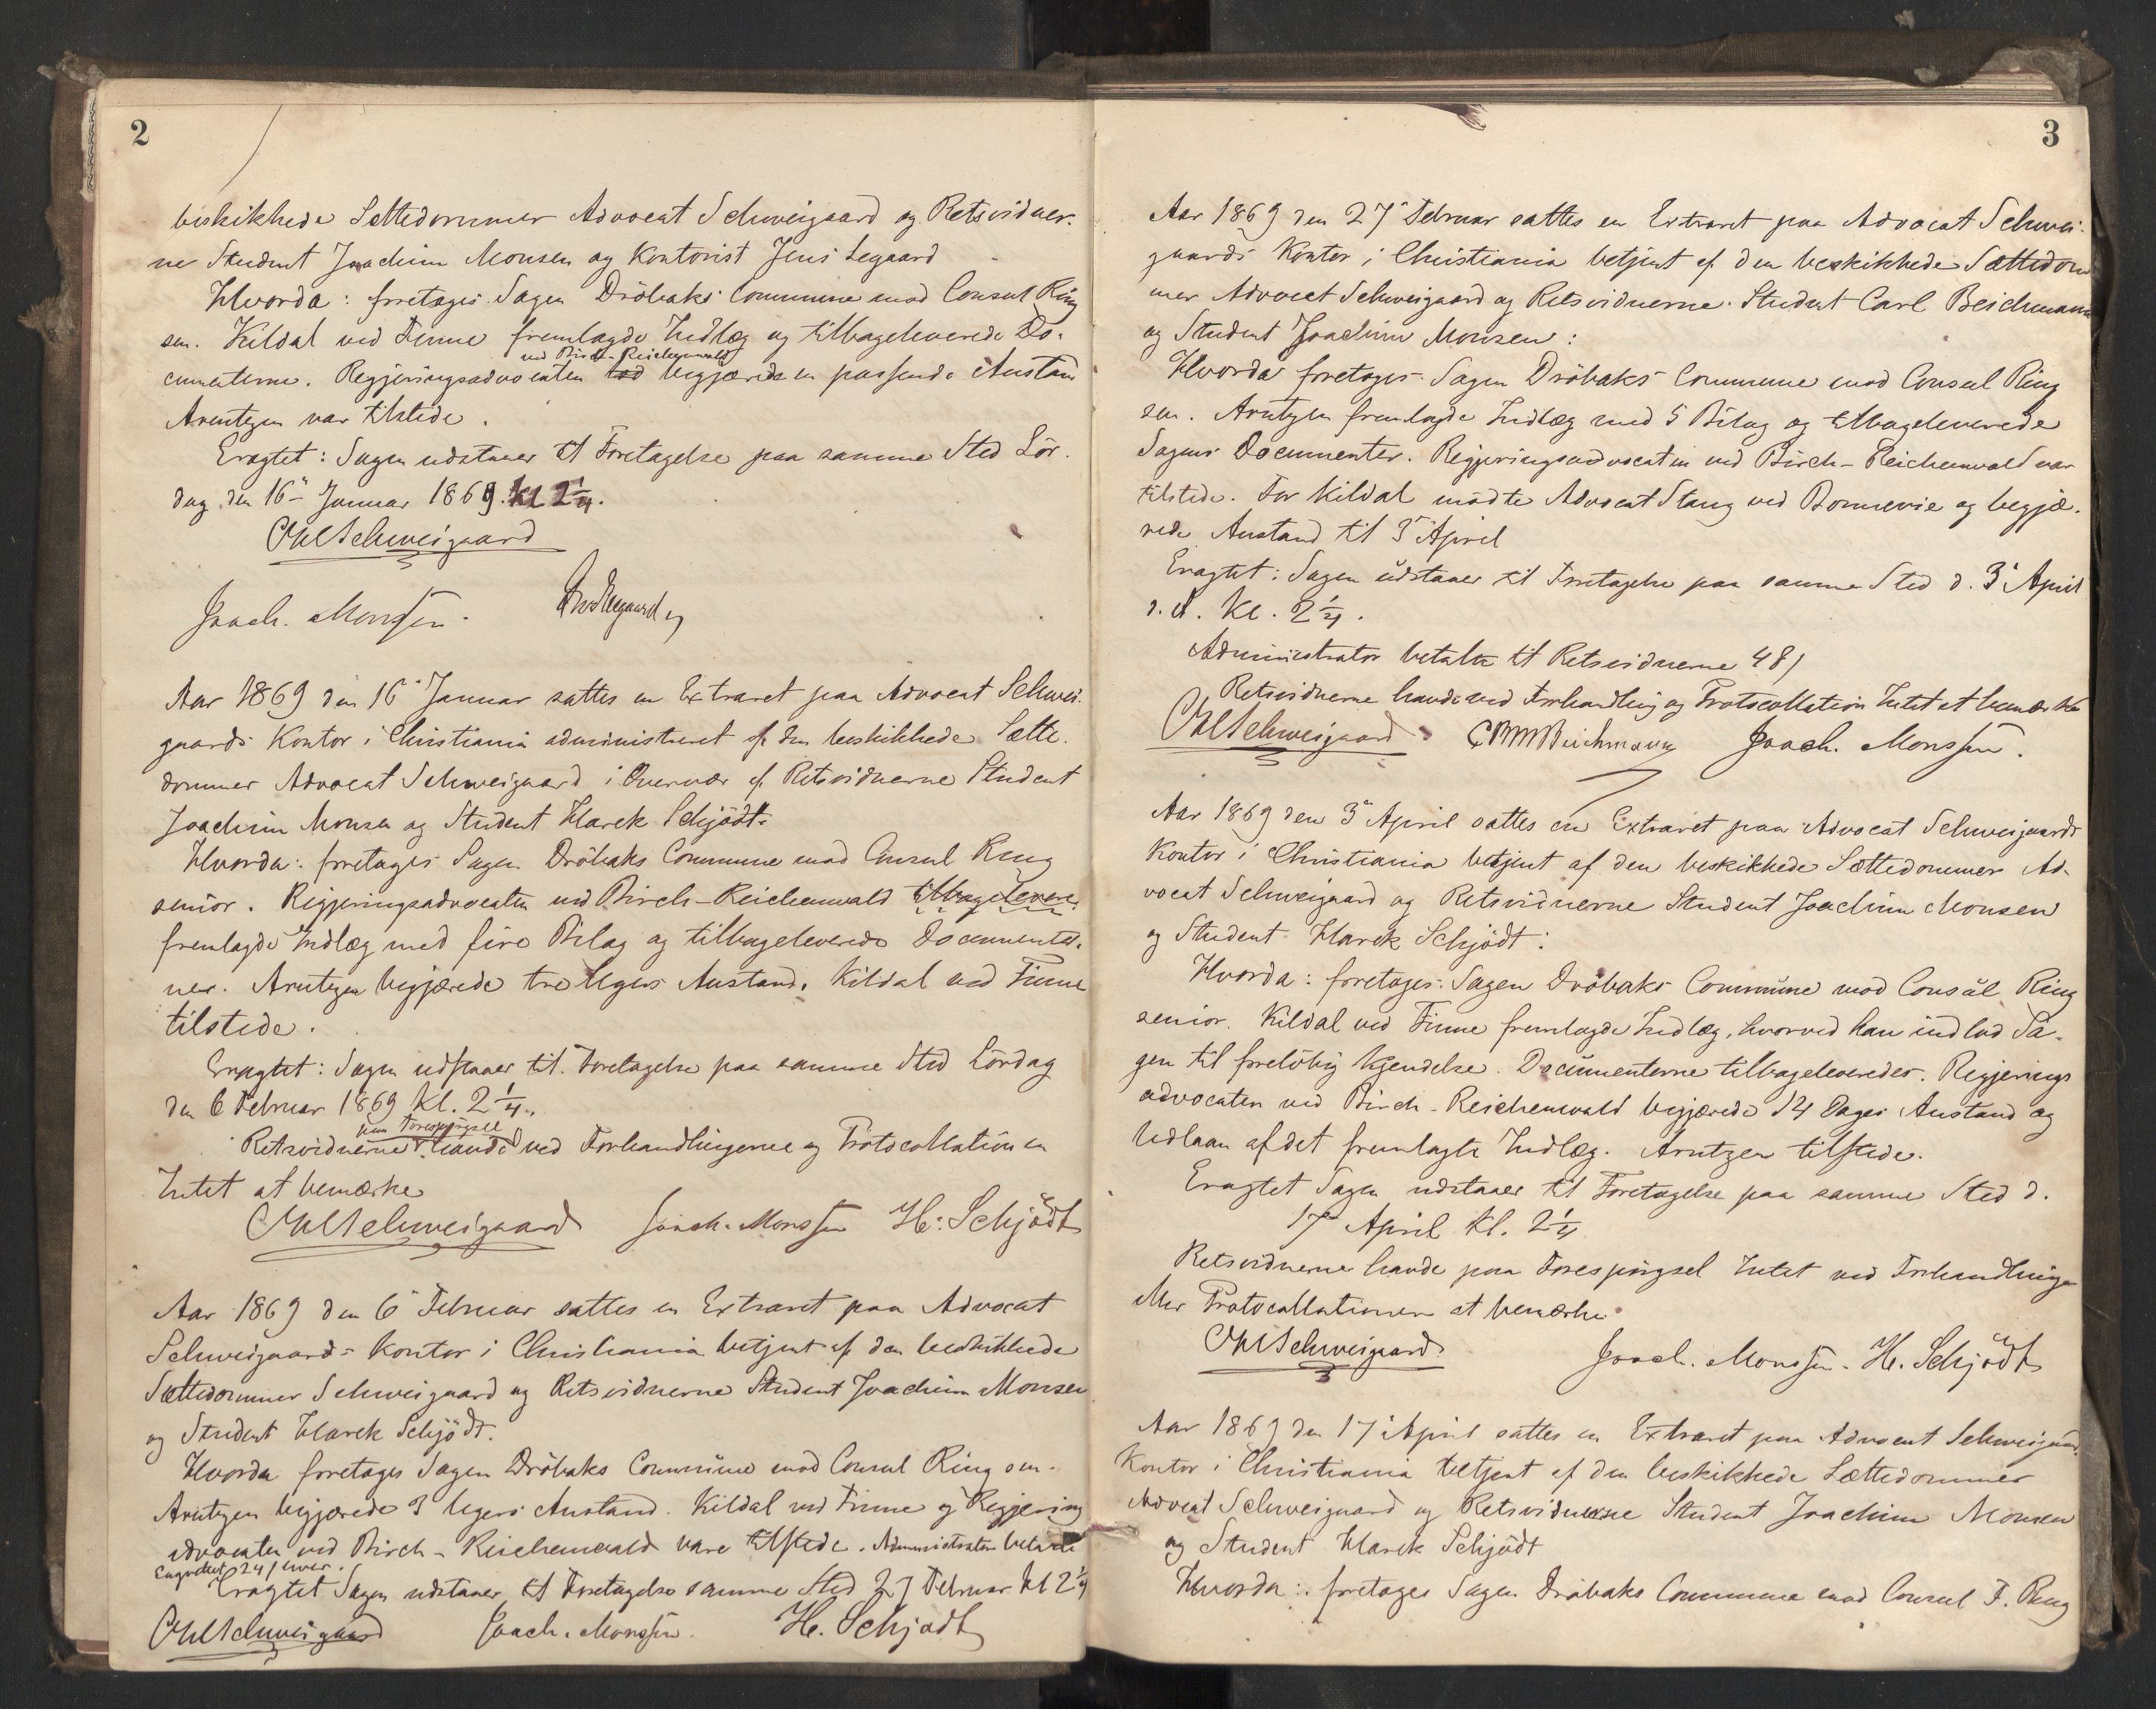 2
beskikkede Settedommer Advocat Schweigaard og Retsvidner-
ne Student Joachim Monsen og Kontorist Jens Segaard
Hvorda: foretoges Sagen Dröbaks Commune mod Consul Ring
sen. Kildal ved Finne fremlagde Indlæg og tilbageleverede Do-
ved Birch-Reichenwald
cumenterne. Regjeringsadvocaten begjærede en passende Anstand
Arntzen var tilstede.
Eragtet: Sagen udstaaer til Foretagelse paa samme Sted Lör-
dag den 16de Januar 1869. Kl 2 1/4.
Schweigaard
Joach. Monssen.
Aar 1869 den 16' Januar sattes en Extraret paa Advocat Schwei-
gaards Kontor i Christiania administreret af den beskikkede Sætte-
dommer Advocat Schweigaard i Overvær af Retsvidnerne Student
Joachim Monsen og Student Harek Schjödt.
Hvorda: foretoges Sagen Dröbaks Commune mod Consul Ring
senior. Regjeringsadvocaten ved Birch-Reichenwald tilbagelevere
fremlagde Indlæg med fire Bilag og tilbageleverede Documenter-
ne. Arntzen begjærede tre Ugers Anstand. Kildal ved Finne
tilstede.
Eragtet: Sagen udstaaer til Foretagelse paa samme Sted Lördag
den 6 Februar 1869 Kl. 2 1/4.
paa Forespörgsel
Retsvidnerne havde ved Forhandlingerne og Protocollationen
Intet at bemærke
Schweigaard Joach. Monssen H. Schjödt
Aar 1869 den 6' Februar sattes en Extraret paa Advocat
Schweigaards Kontor i Christiania betjent af den beskikkede
Sættedommer Schweigaard og Retsvidnerne Student Joachim Monsen
og Student Harek Schjödt.
Hvorda foretoges Sagen Dröbaks Commune mod Consul Ring sen.
Arntzen begjærede 3 Ugers Anstand. Kildal ved Finne og Regjerings
advocaten ved Birch-Reichenwald vare tilstede. Administrator betalte
24/ hver.
Eragtet Sagen udstaaer til Foretagelse samme Sted 27 Februar Kl 2 1/4
Schweigaard Joach. Monssen. H. Schjödt
3
Aar 1869 den 27' Februar sattes en Extraret paa Advocat Schwei-
gaards Kontor i Christiania betjent af den beskikkede Sættedom
mer Advocat Schweigaard og Retsvidnerne Student Carl Beichmann
og Student Joachim Monsen:
Hvorda foretoges Sagen Dröbaks Commune mod Consul Ring
sen. Arntzen fremlagde Indlæg med 5 Bilag og tilbageleverede
Sagens Documenter. Regjeringsadvocaten ved Birch-Reichenwald var
tilstede. For Kildal mödte Advocat Stang ved Bonnevie og begjæ-
rede Anstand til 3' April
Eragtet: Sagen udstaaer til Foretagelse paa samme Sted d. 3' April
d. A. Kl. 2 1/4.
Administrator betalte til Retsvidnerne 48/
Retsvidnerne havde ved Forhandling og Protocollation Intet at bemærke
Schweigaard Beichmann Joach. Monssen.
Aar 1869 den 3' April sattes en Extraret paa Advocat Schweigaards
Kontor i Christiania betjent af den beskikkede Sættedommer Ad-
vocat Schweigaard og Retsvidnerne Student Joachim Monsen
og Student Harek Schjödt:
Hvorda: foretoges: Sagen Dröbaks Commune mod Consul Ring
senior. Kildal ved Finne fremlagde Indlæg, hvorved han indlod Sa-
gen til forelöbig Kjendelse. Documenterne tilbageleveredes. Regjerings
advocaten ved Birch-Reichenwald begjærede 14 Dages Anstand og
Udlaan af det fremlagte Indlæg. Arntzen tilstede.
Eragtet Sagen udstaaer til Foretagelse paa samme Sted d.
17 April Kl. 2 1/4
Retsvidnerne havde paa Forespörgsel Intet ved Forhandlinge
eller Protocollationen at bemærke.
Schweigaard Joach. Monssen. H. Schjödt
Aar 1869 den 17' April sattes en Extraret paa Advocat Schweigaards
Kontor i Christiania betjent af den beskikkede Sættedommer
Advocat Schweigaard og Retsvidnerne Student Joachim Monsen
og Student Harek Schjödt
Hvorda: foretoges Sagen Dröbaks Commune mod Consul F. Ring